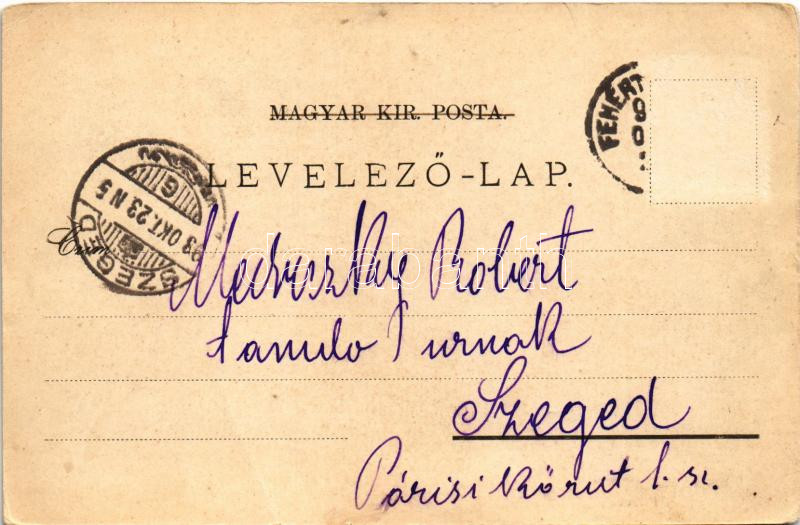 MAGYAR KIR. POSTA.
LEVELEZŐ-LAP.
FEHÉRT
SZEGED
903 OKT. 23 N 5
G
Czím
Robert
tanuló urnak
Szeged
Párisi körut 1. sz.
darabanth